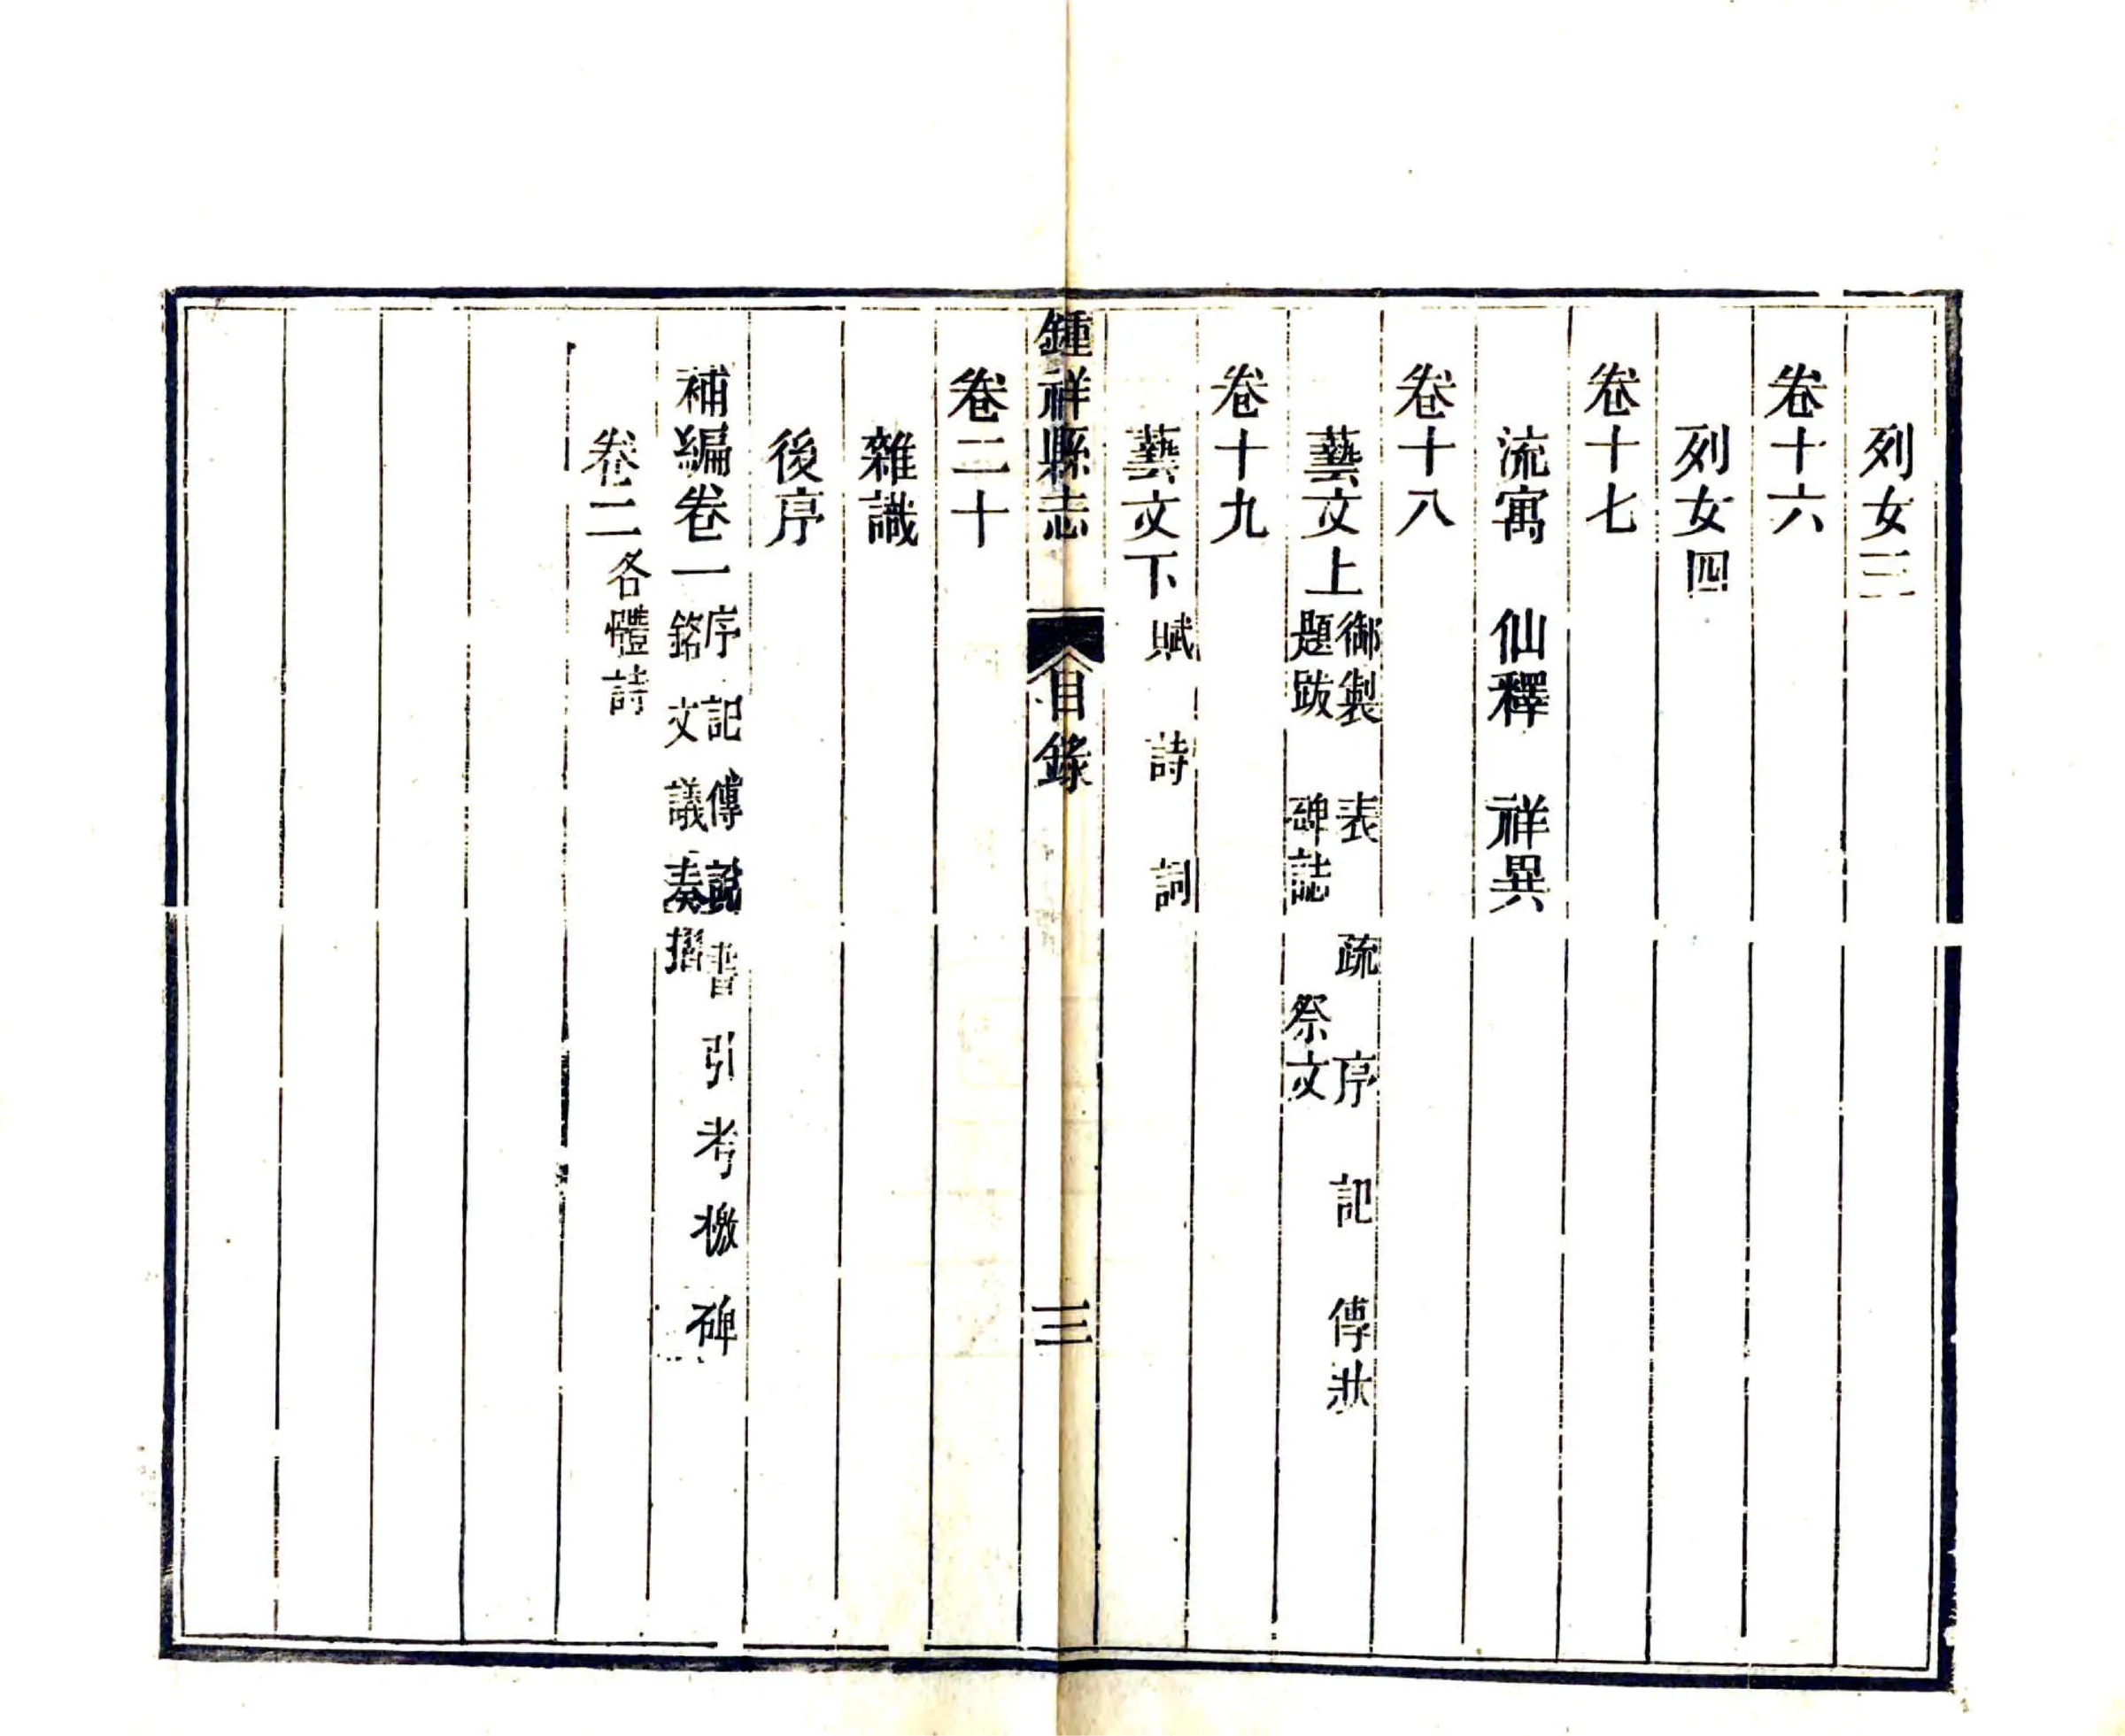 列女三
卷十六
列女四
卷十七
流寓 仙釋 祥異
卷十八
藝文上 御製 表 疏 序 記 傳狀
題跋 碑誌 祭文
卷十九
藝文下 賦 詩 詞
鍾祥縣志 目錄 三
卷二十
雜識
後序
補編卷一 序 記 傳 說 書 引 考 檄 碑
銘 文 議 奏摺
卷二 各體詩